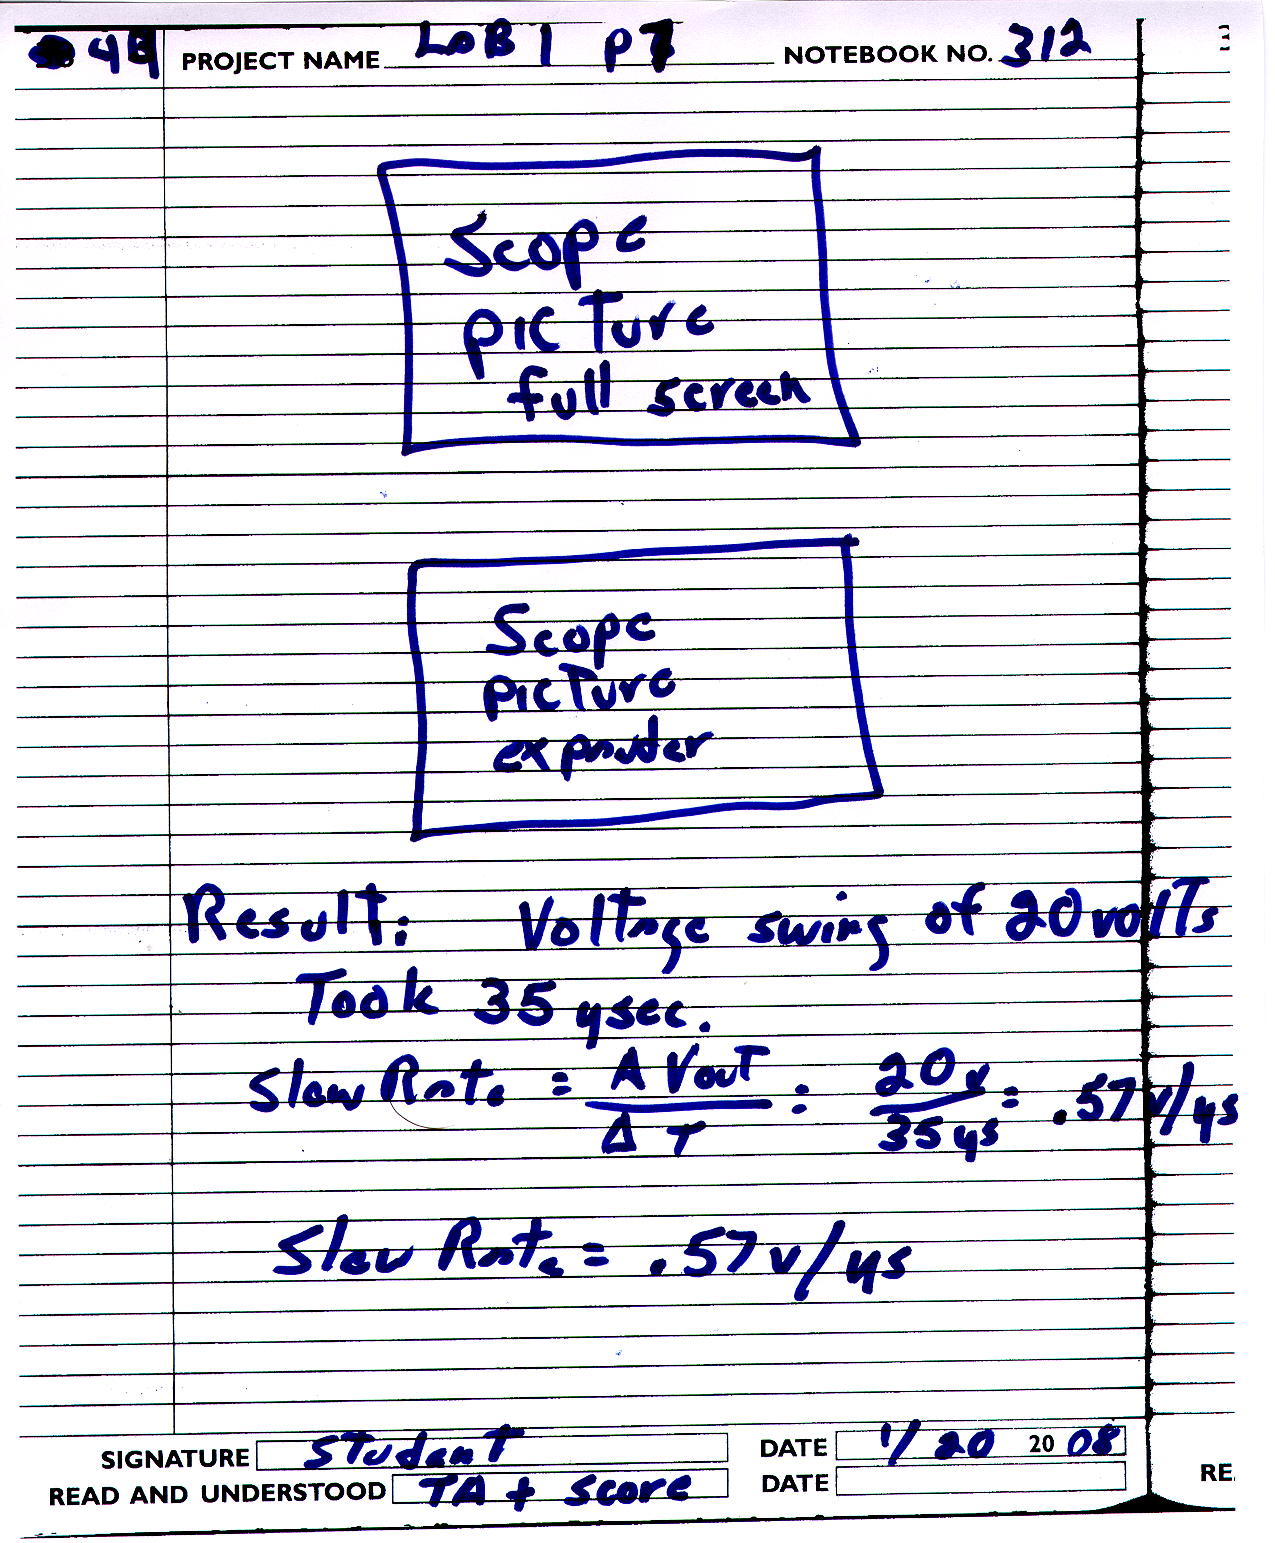 PROJECT NAME LAB 1 P7 NOTEBOOK NO. 312
Scope
picture
full screen
Scope
picture
expander
Result: Voltage swing of 20 volts
Took 35 μsec.
Slew Rate = Δ Vout / Δ T = 20 v / 35 μs = .57 v/μs
Slew Rate = .57 v/μs
SIGNATURE Student DATE 1/20 20 08
READ AND UNDERSTOOD TA + Score DATE
RE